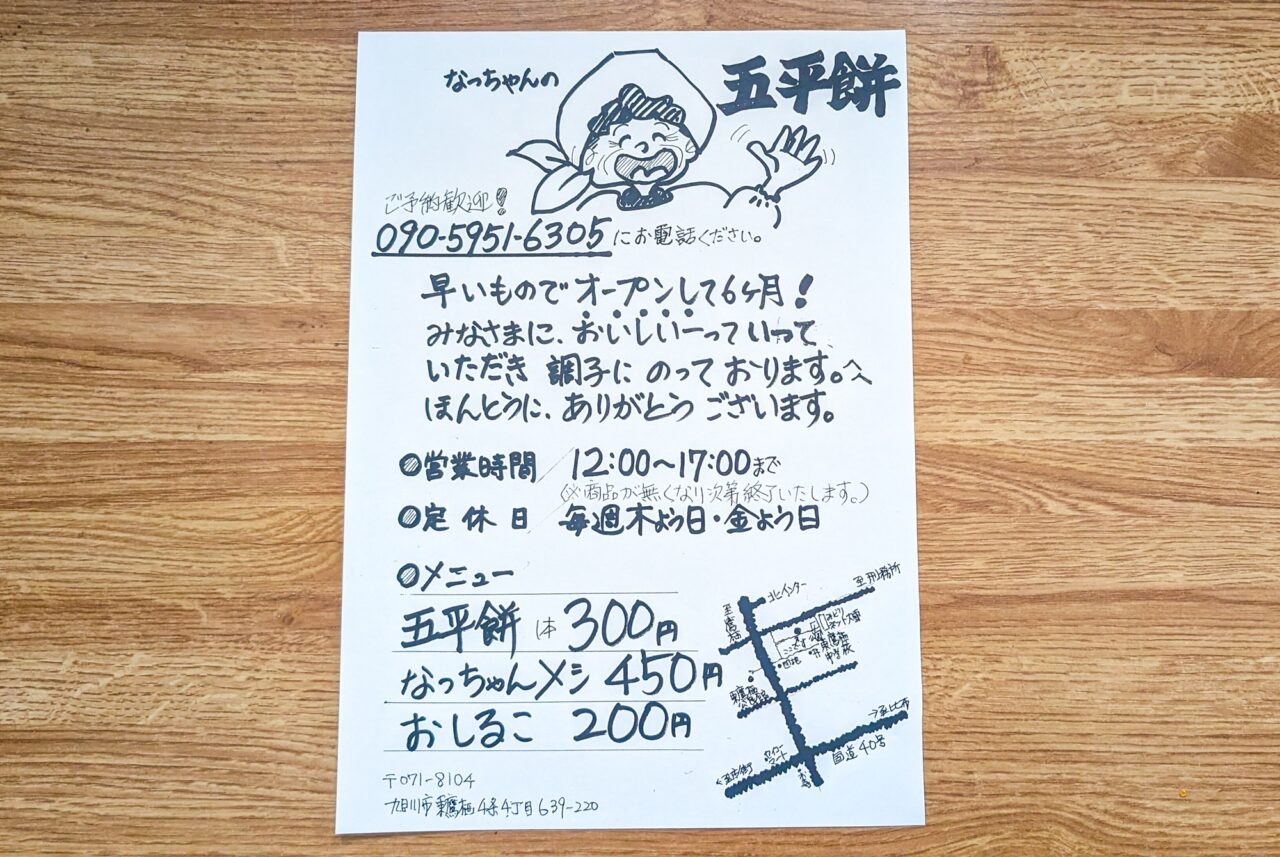 なっちゃんの
五平餅
ご予約歓迎!
090-5951-6305にお電話ください。
早いものでオープンして6ヶ月!
みなさまに、おいしいーっていって
いただき 調子に のって おります。^^
ほんとうに、ありがとう ございます。
◎営業時間 12:00〜17:00まで
(※商品が無くなり次第終了いたします。)
◎定休日 毎週木よう日・金よう日
◎メニュー
五平餅 1本 300円
なっちゃんメシ 450円
おしるこ 200円
〒071-8104
旭川市東鷹栖4条4丁目639-220
北インター
至刑務所
至鷹栖
ここです
団地
東鷹栖
中学校
→至比布
国道40号
←至市街